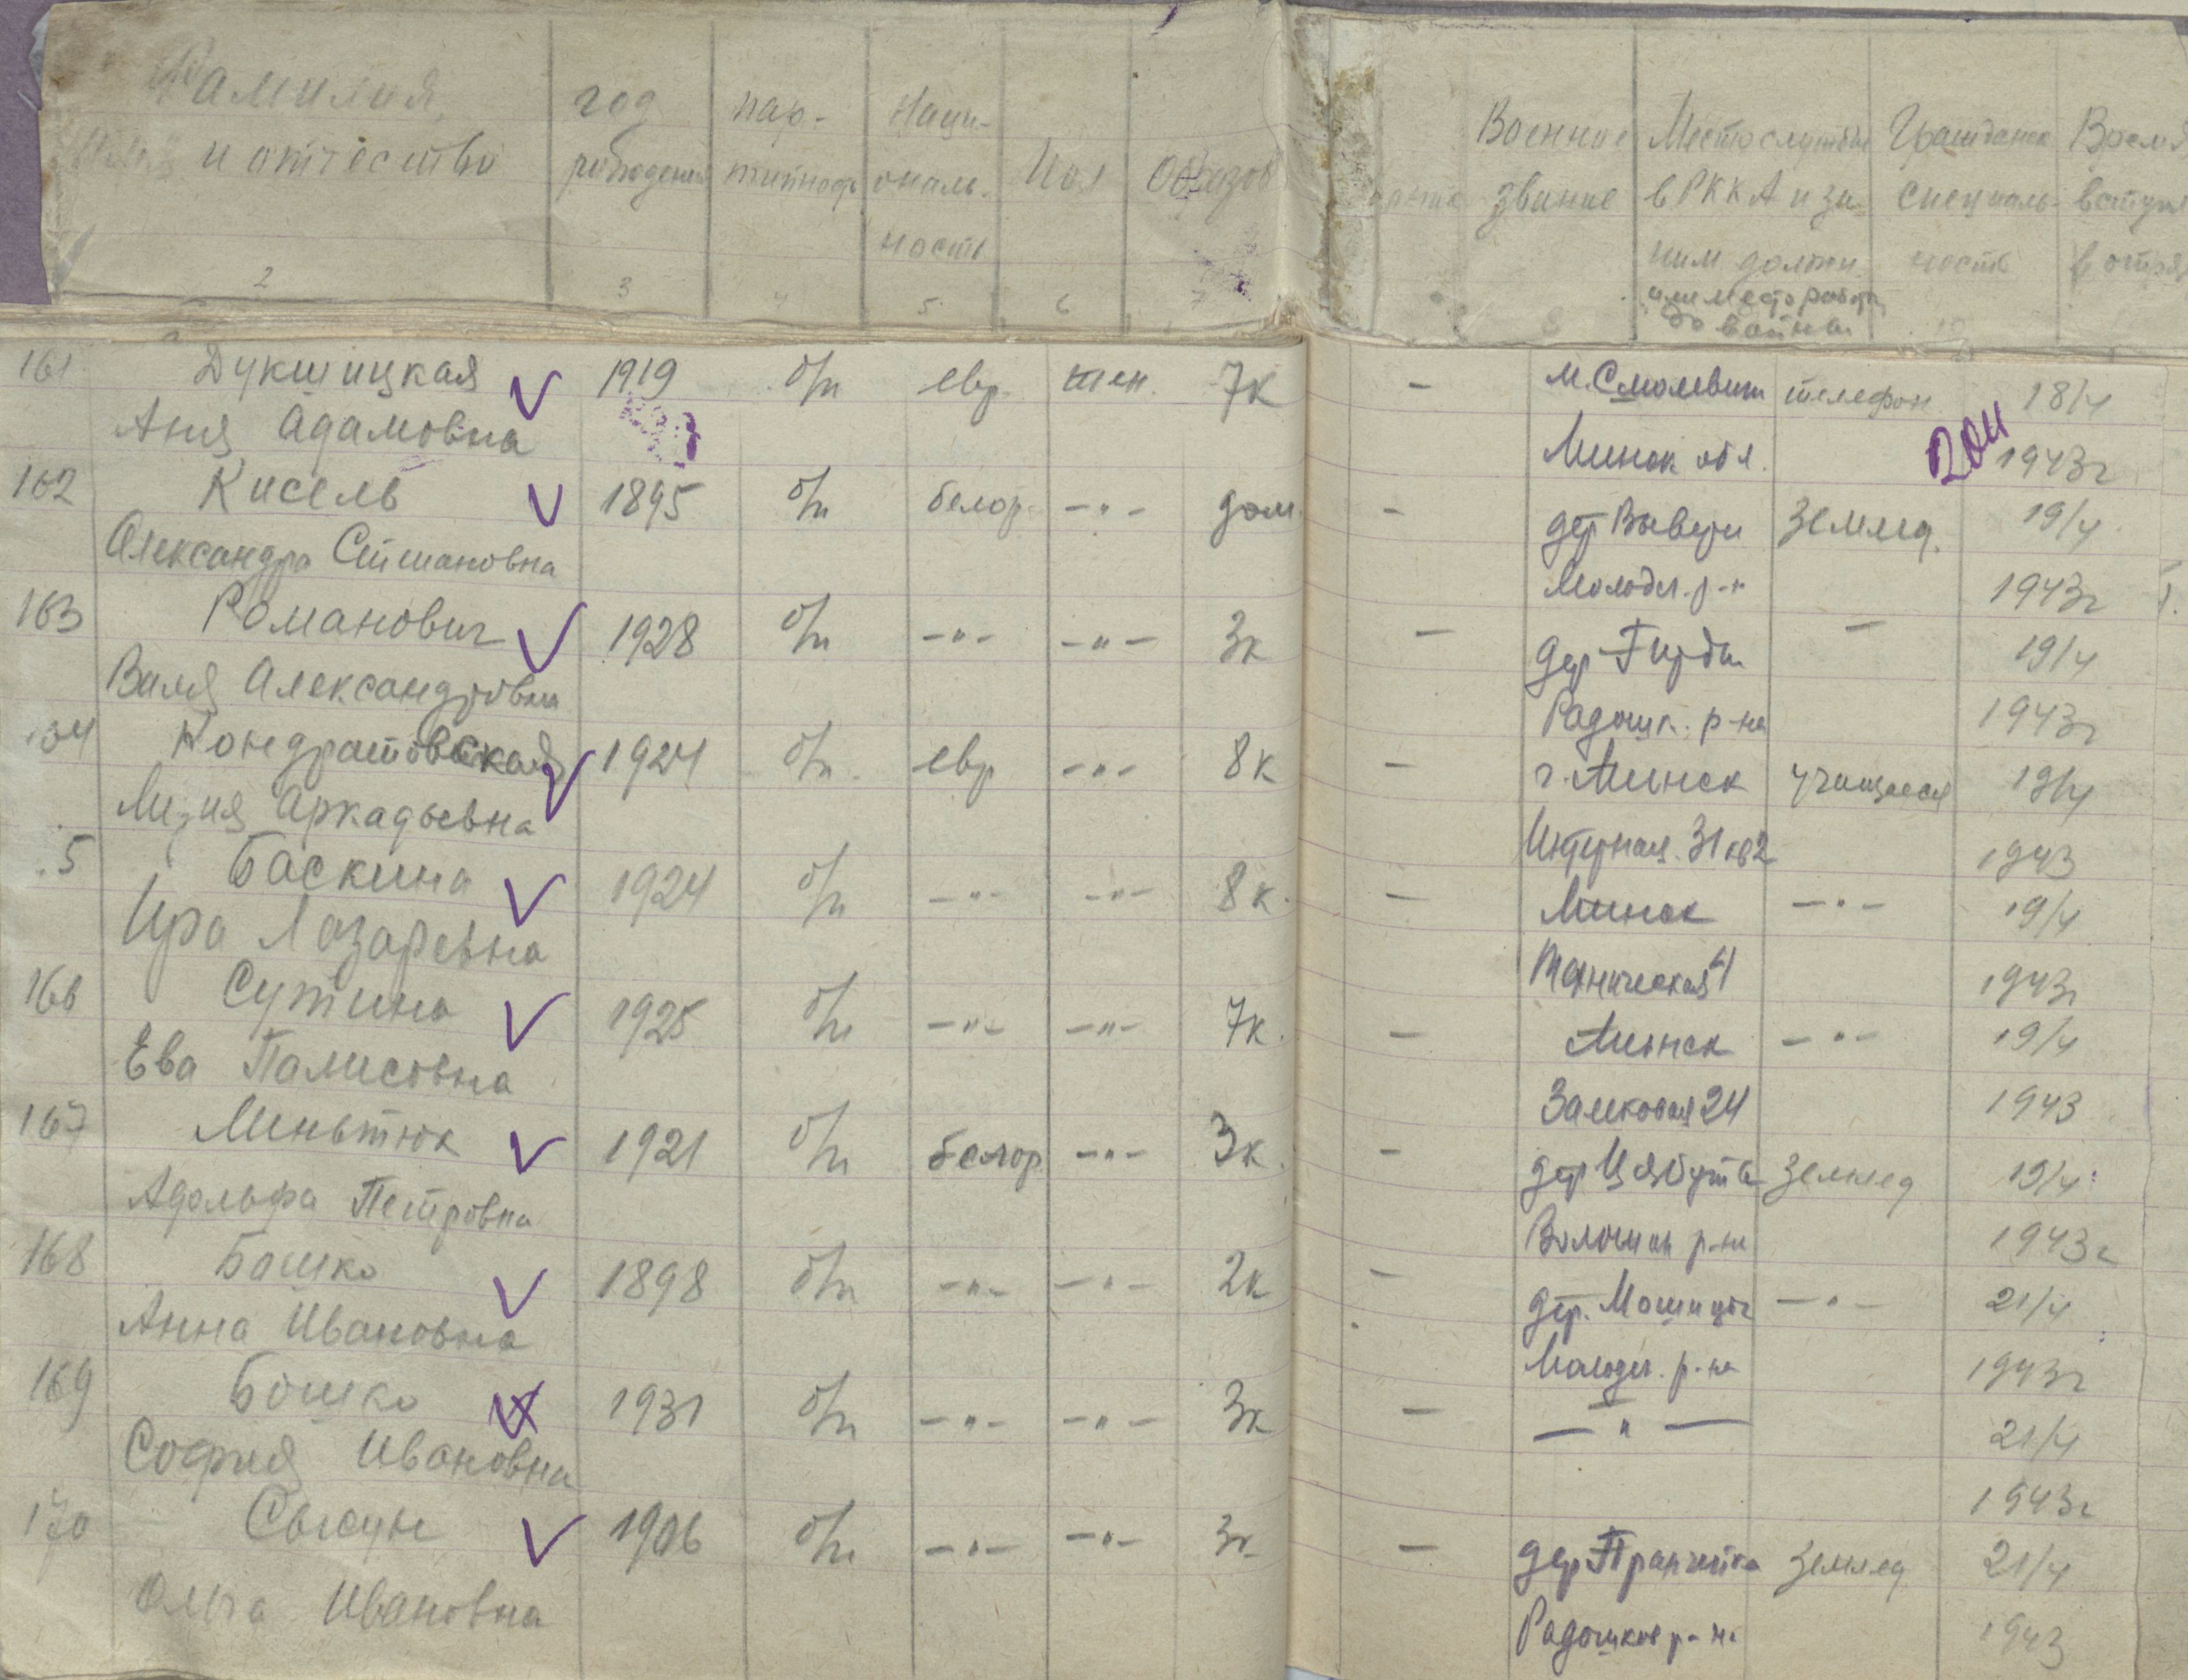 Фамилия, год пар- Наци- Военное Место службы Гражданск Время
имя и отчество рождения тийность ональ- Пол Образов звание в РККА и за- специаль- вступл
ность ним должн. ность в отря
или место работы
до войны
2 3 4 5 6 7 8 10
161 Дукшицкая 1919 б/п евр. жен. 7к - м. Смолевич телефон 18/4
Аня Адамовна Минск обл. 1943г
162 Кисель 1895 б/п белор. -"- дом. - дер Вывери землед. 19/4
Александра Степановна Молодеч. р-н 1943г
163 Романович 1928 б/п -"- -"- 3к - дер Гирды - 19/4
Валя Александровна Радошк. р-на 1943г
164 Кондратовская 1924 б/п евр -"- 8к - г. Минск учащаяся 19/4
Лизия Аркадьевна Интерная 31 кв2 1943
5 Баскина 1924 б/п -"- -"- 8к. - Минск -"- 19/4
Ира Лазаревна Техническая 4 1943г
166 Сутина 1925 б/п -"- -"- 7к. - Минск -"- 19/4
Ева Палисовна Замковая 24 1943
167 Миньтюк 1921 б/п белор -"- 3к. - дер землед 19/4
Адольфа Петровна Воложин р-на 1943г
168 Башко 1898 б/п -"- -"- 2к - дер. Мошицы -"- 21/4
Анна Ивановна Молодеч. р-на 1943г
169 Бошко 1931 б/п -"- -"- 3к - -"- 21/4
София Ивановна 1943г
170 Сысун 1906 б/п -"- -"- 3к - дер землед 21/4
Ольга Ивановна Радошков р-н. 1943